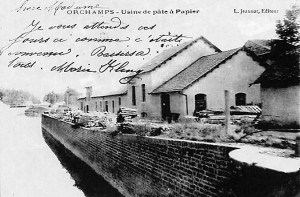 Chère Madame
ORCHAMPS - Usine de pâte à Papier
L. Jeannot, Editeur
Je vous attends ces
jours ci comme c'était
convenu. Baisers à
tous. Marie